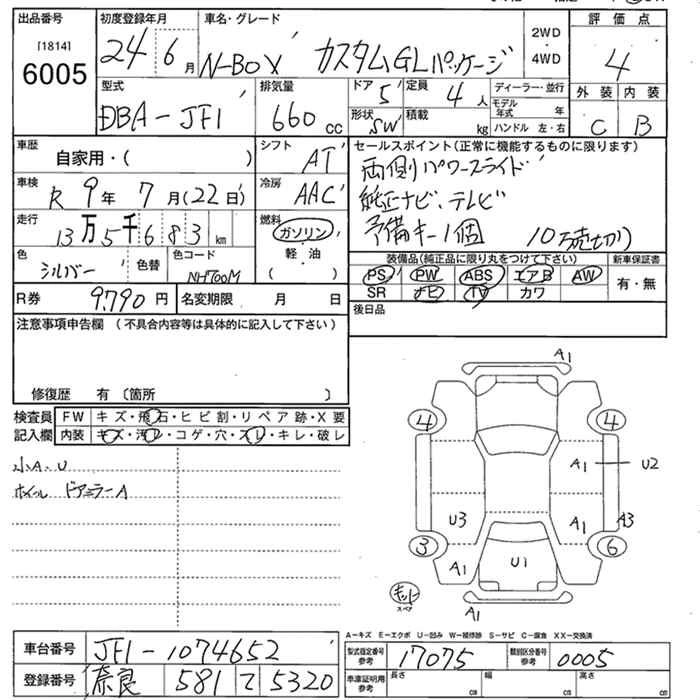 出品番号 初度登録年月 車名・グレード 2WD・4WD 評価点
[1814]
6005 24年6月 N-BOX カスタムGLパッケージ 4
型式 排気量 ドア 5 定員 4人 ディーラー・並行 外装 内装
DBA-JF1 660cc 形状 SW 積載 kg モデル年式 年 ハンドル 左・右 C B
車歴 シフト セールスポイント(正常に機能するものに限ります)
自家用・( ) AT 両側パワースライド
車検 冷房 純正ナビ、テレビ
R9年7月(22日) AAC 予備キー1個 10万売切り
走行 燃料
13万5千683km ガソリン・軽油( )
色 色替 色コード 装備品(純正品に限り丸をつけて下さい) 新車保証書
シルバー NH700M PS PW ABS エアB AW 有・無
SR ナビ TV カワ
R券 9790円 名変期限 月 日 後日品
注意事項申告欄(不具合内容等は具体的に記入して下さい)
修復歴 有〔箇所 〕
検査員 FW キズ・飛石・ヒビ割・リペア跡・X要
記入欄 内装 キズ・汚レ・コゲ・穴・スレ・キレ・破レ
小A.U
ホイール ドアミラーA
A1
4 4
A1 U2
U3 A1 A3
3 6
A1 U1
スペア
A1
A-キズ E-エクボ U-凹み W-補修跡 S-サビ C-腐食 XX-交換済
車台番号 JF1-1074652 型式指定番号 参考 17075 類別区分番号 参考 0005
登録番号 奈良 581 て 5320 車庫証明用 参考 長さ cm 幅 cm 高さ cm